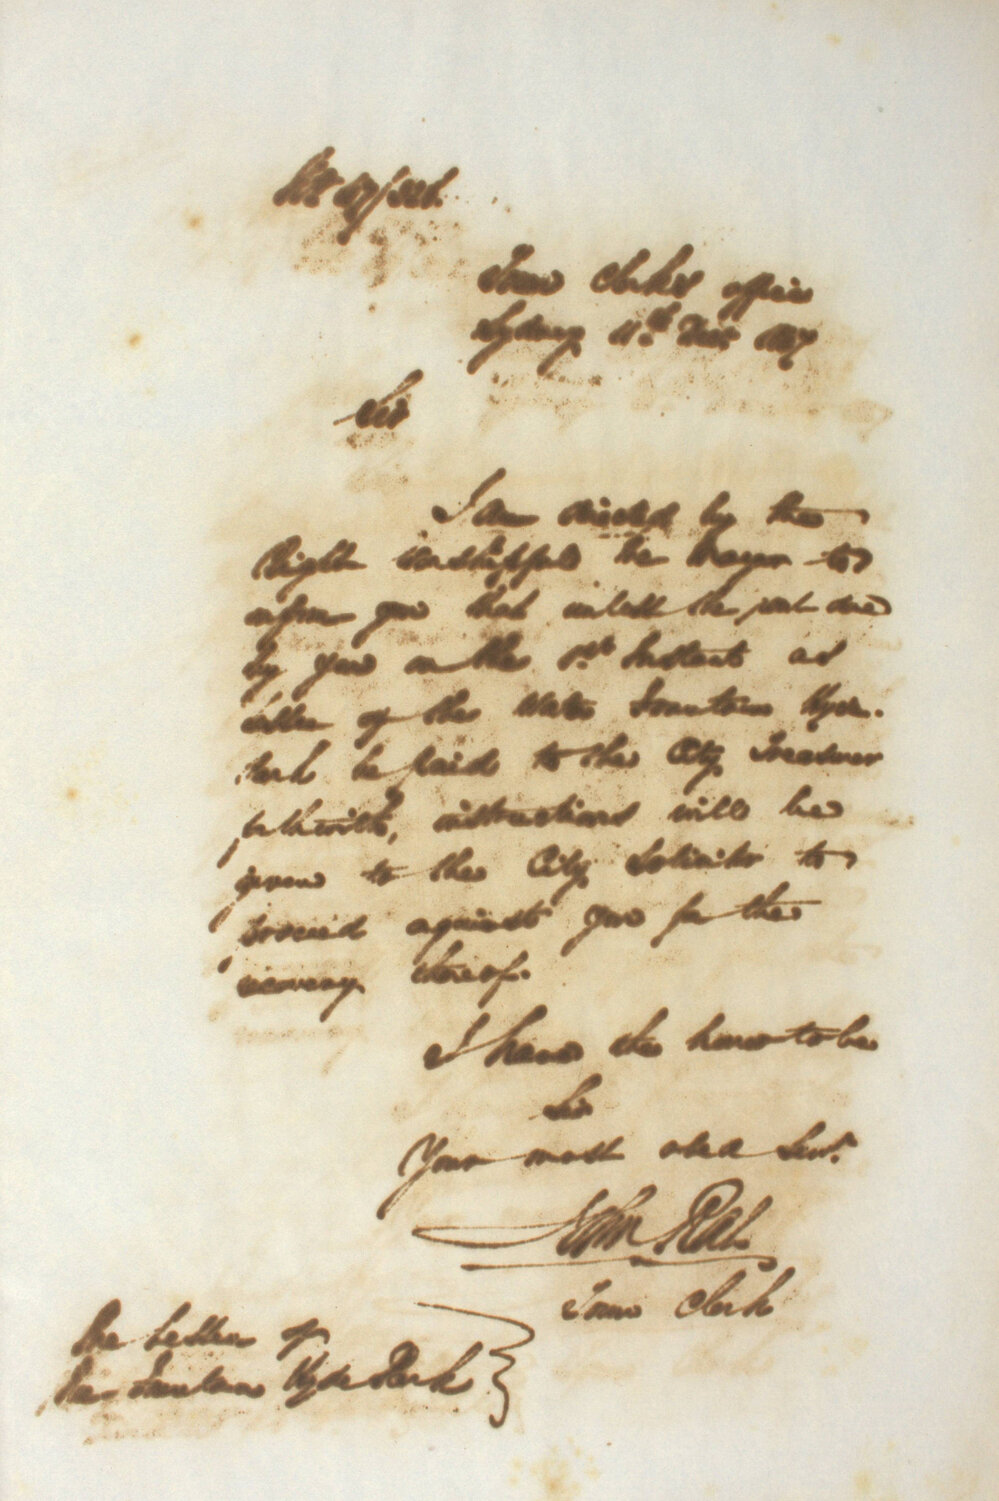 47/326.
Town Clerk's office
Sydney 11th Decr 1847
Sir
I am directed by the
Right Worshipful the Mayor to
inform you that unless the rent due
by you on the 1st Instant as
of the Water Fountain Hyde
Park be paid to the City Treasurer
forthwith, instructions will be
given to the City Solicitor to
proceed against you for the
recovery thereof.
I have the honor to be
Sir
Your most obed Servt
John Rae
Town Clerk
The Lessee of
the Fountain Hyde Park